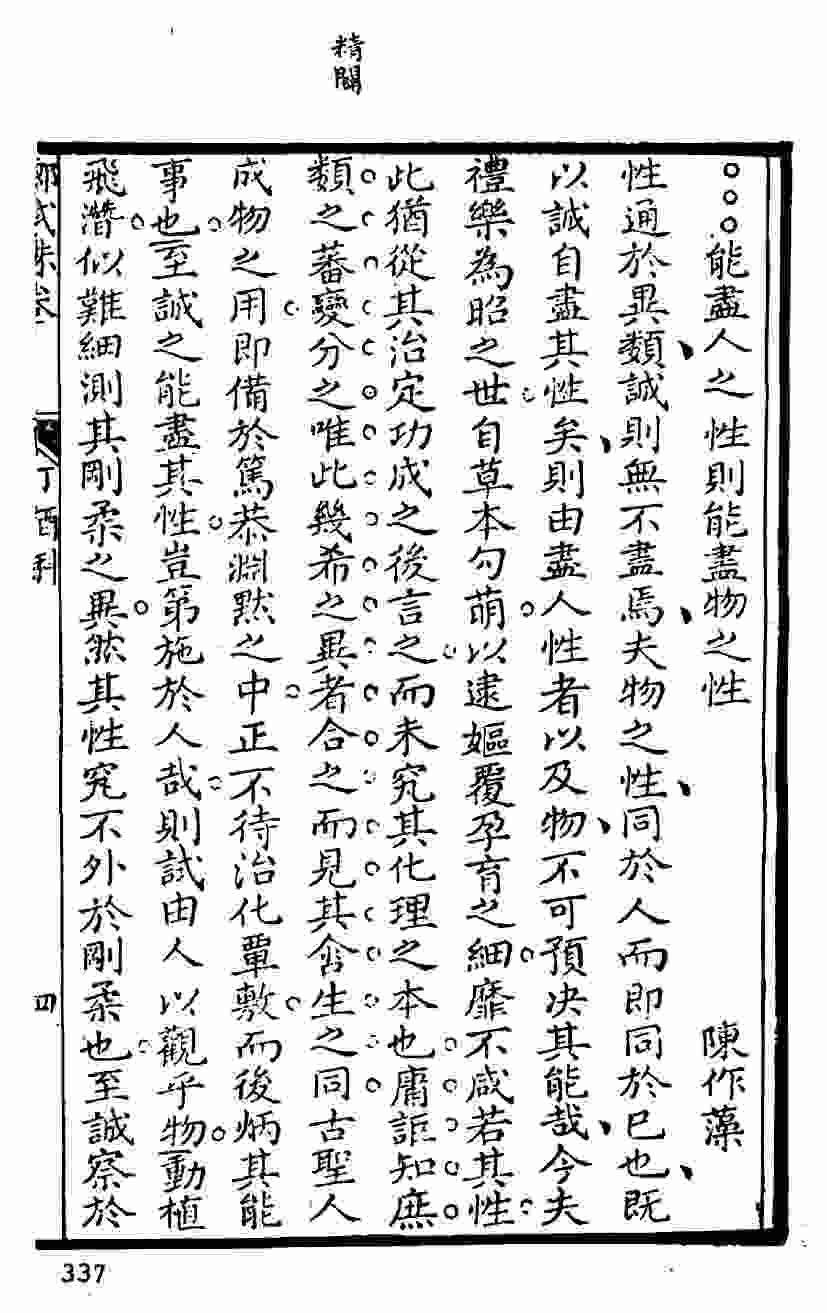 精闢
能盡人之性則能盡物之性 陳作藻
性通於異類誠則無不盡焉夫物之性同於人而即同於已也既
以誠自盡其性矣則由盡人性者以及物不可預决其能哉今夫
禮樂為昭之世自草本勾萌以逮嫗覆孕育之細靡不咸若其性
此猶從其治定功成之後言之而未究其化理之本也庸詎知庶
類之蕃變分之唯此幾希之異者合之而見其含生之同古聖人
成物之用即備於篤恭淵默之中正不待治化覃敷而後炳其能
事也至誠之能盡其性豈第施於人哉則試由人以觀乎物動植
飛潛似難細測其剛柔之異然其性究不外於剛柔也至誠察於
鄉試硃卷 丁酉科 四
337